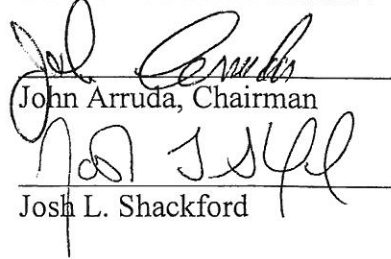 John Arruda, Chairman
Josh L. Shackford